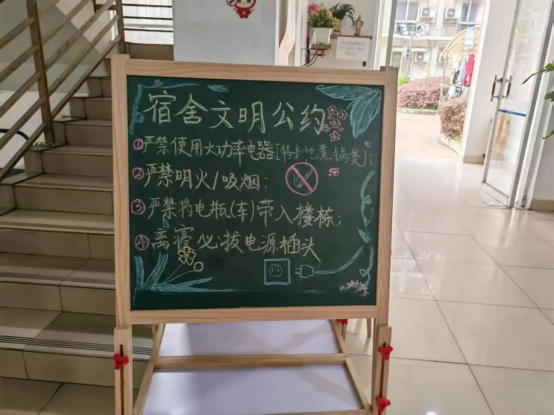 宿舍文明公约
①严禁使用大功率电器[特别是煮锅类];
②严禁明火/吸烟;
③严禁将电瓶(车)带入楼栋;
④离寝必拔电源插头